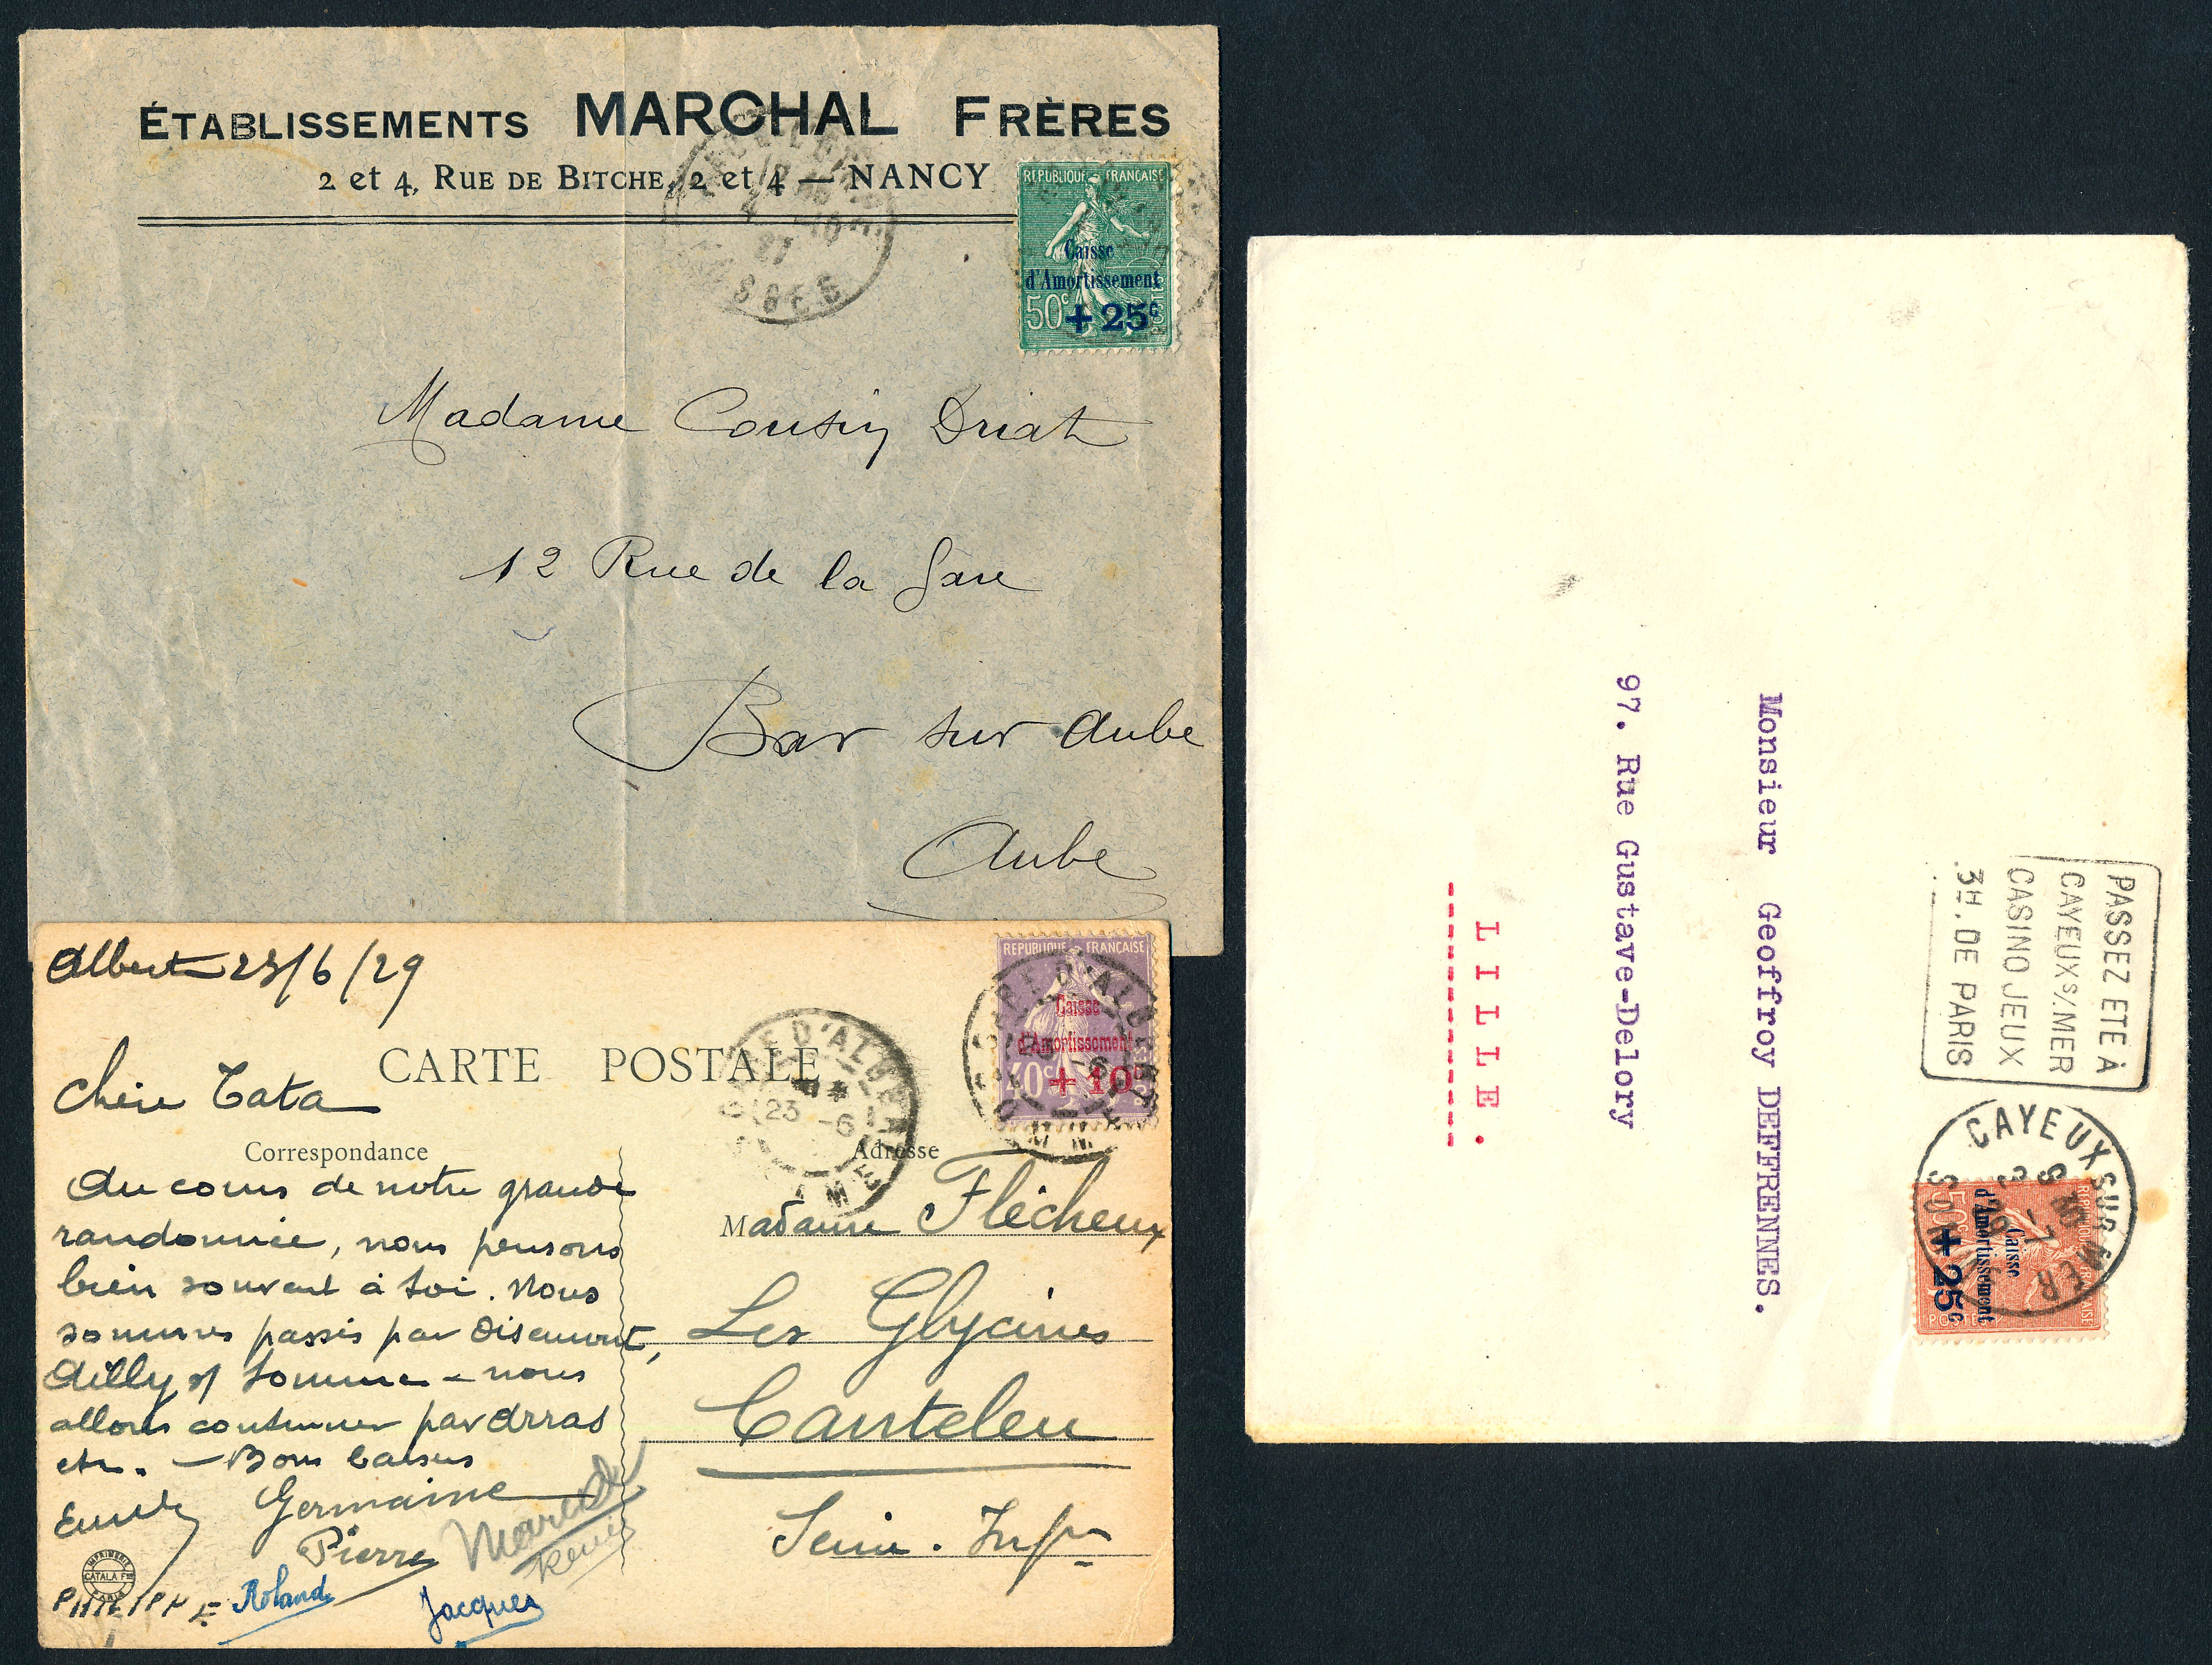 ÉTABLISSEMENTS MARCHAL FRÈRES
2 et 4, RUE DE BITCHE, 2 et 4 — NANCY
27
REPUBLIQUE FRANÇAISE
Caisse
d'Amortissement
50c +25c
Madame Cousin Driat
12 Rue de la Gare
Bar sur Aube
Aube
Albert 23/6/29
REPUBLIQUE FRANÇAISE
Caisse
d'Amortissement
40c +10c
POSTES
CARTE POSTALE
D'ALBERT
23 -6
SOMME
Chère Tata
Correspondance
Adresse
Au cours de notre grande
randonnée, nous pensons
bien souvent à toi. Nous
sommes passés par Disemont,
Ailly s/ Somme - nous
allons continuer par Arras
etc. - Bons baisers
Germaine
Pierre
Roland
Jacques
PHILIPPE
IMPRIMERIE
CATALA Frès
PARIS
Madame Flécheux
Les Glycines
Canteleu
Seine. Infre
PASSEZ ETE À
CAYEUX S/MER
CASINO JEUX
3H. DE PARIS
CAYEUX SUR MER
SOMME
REPUBLIQUE FRANÇAISE
Caisse
d'Amortissement
50c +25c
POSTES
Monsieur Geoffroy DEFFRENNES.
97. Rue Gustave-Delory
LILLE.